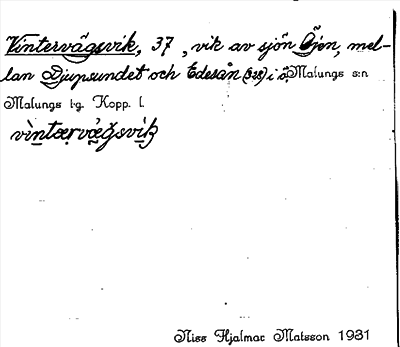 Vintervägsvik, 37, vik av sjön Öjen, mel-
lan Djupsundet och Edesån (328) i ö. Malungs s:n
Malungs t:g. Kopp. l.
Niss Hjalmar Matsson 1931